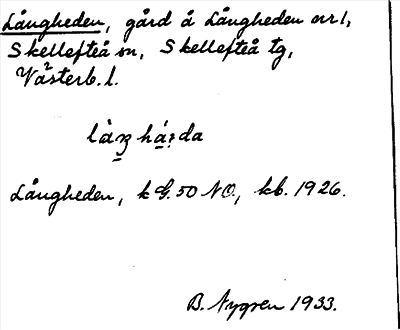 Långheden, gård å Långheden nr 1,
Skellefteå sn, Skellefteå tg,
Västerb. l.
Långheden, k G. 50 NO, kb. 1926.
B. Nygren 1933.